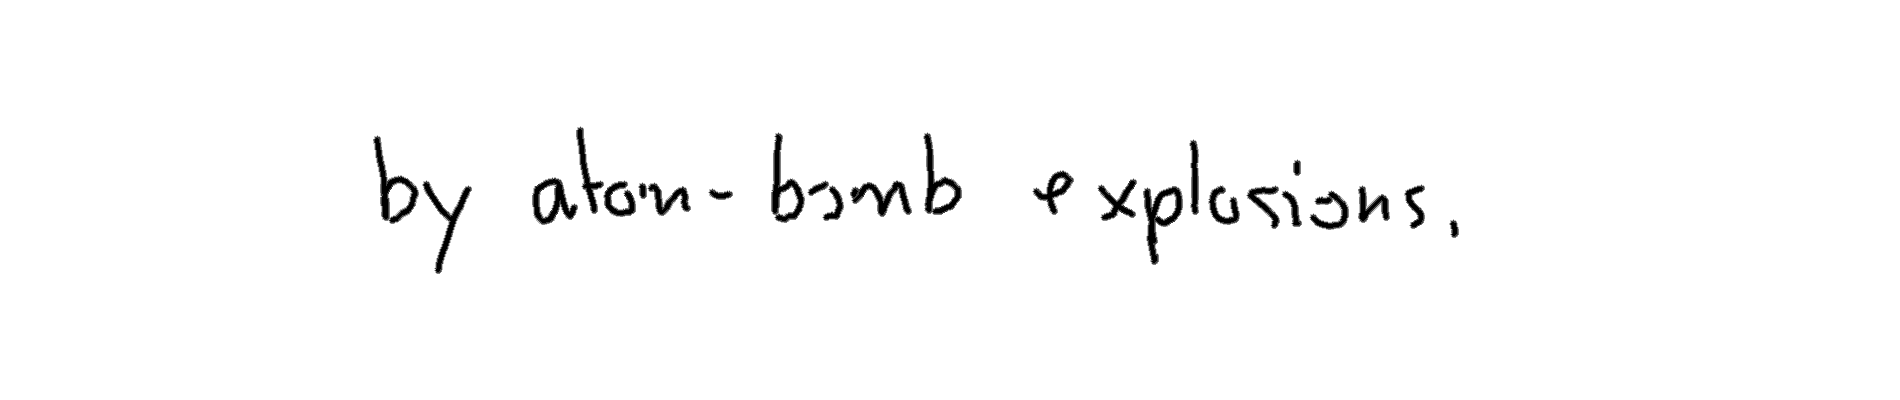 by atom-bomb explosions.